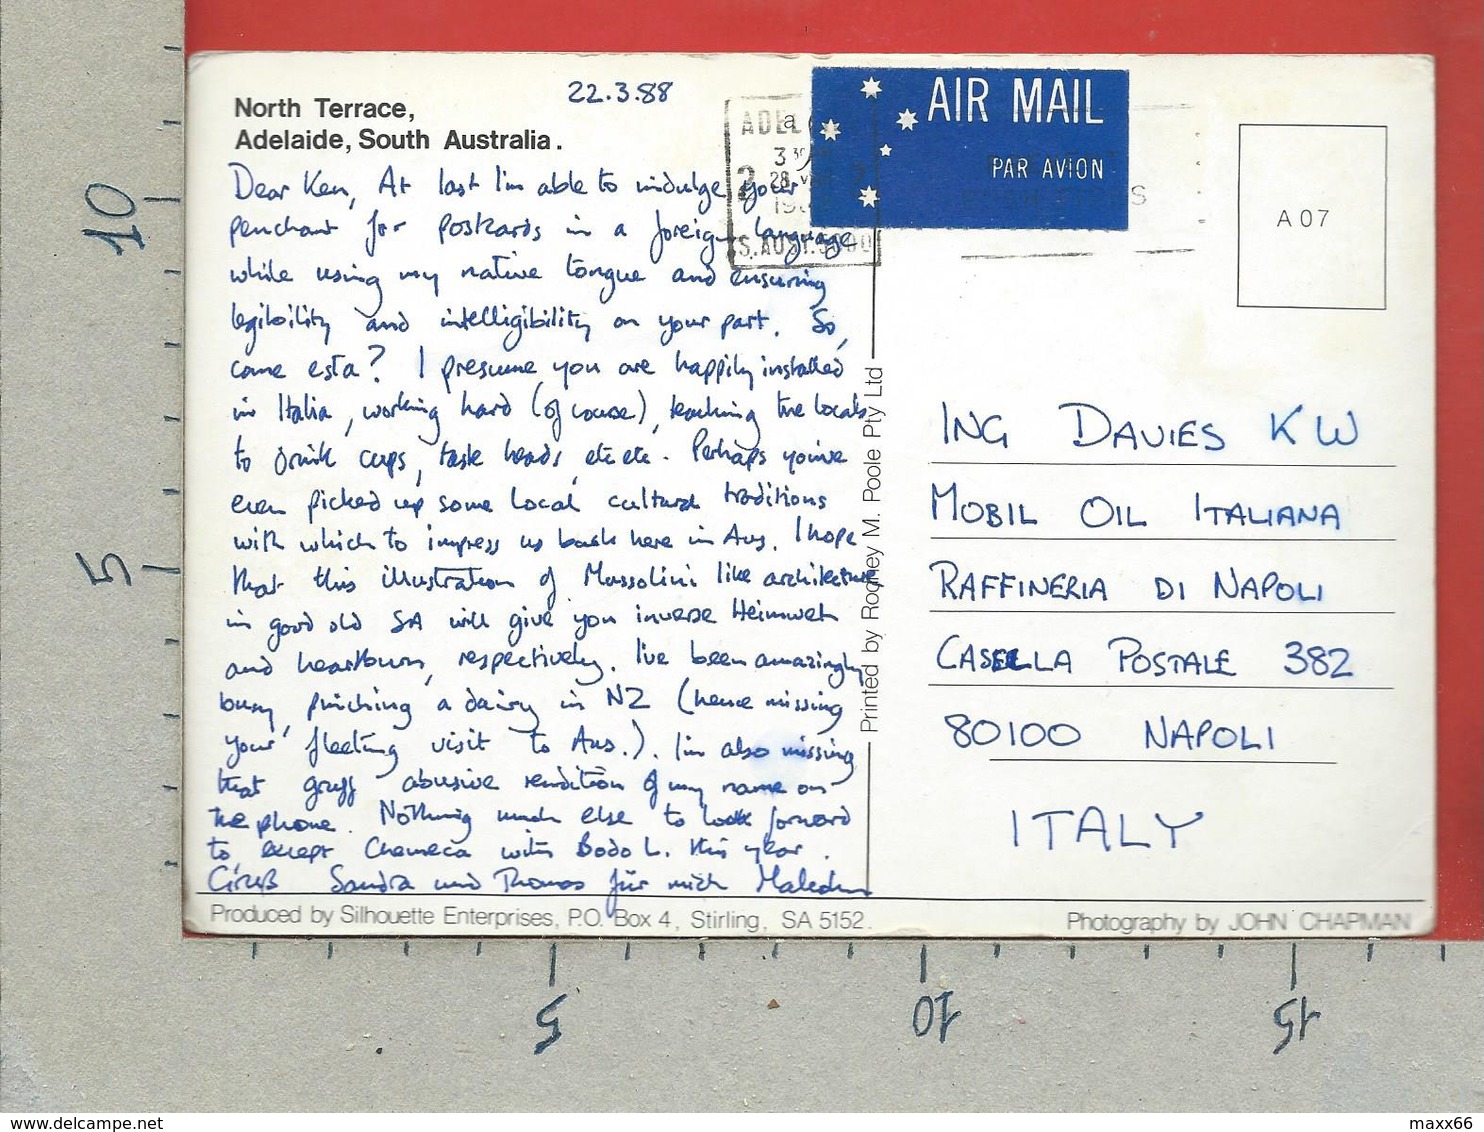 North Terrace,
Adelaide, South Australia.
22.3.88
Dear Ken, At last I'm able to indulge your
penchant for postcards in a foreign language
while using my native tongue and ensuring
legibility and intelligibility on your part. So,
come esta? I presume you are happily installed
in Italia, working hard (of course), teaching the locals
to drink cups, task heads, etc etc. Perhaps you've
even picked up some local cultural traditions
with which to impress us back here in Aus. I hope
that this illustration of Mussolini like architecture
in good old SA will give you inverse Heimweh
and heartburn, respectively. I've been amazingly
busy, pinching a dairy in NZ (hence missing
your fleeting visit to Aus.). I'm also missing
that gruff abusive rendition of my name on
the phone. Nothing much else to look forward
to, except Chemeca with Bodo L. this year.
Sandra und Thomas für mich
ADEL
28
S. AUST. 5000
AIR MAIL
PAR AVION
A 07
ING DAVIES K W
MOBIL OIL ITALIANA
RAFFINERIA DI NAPOLI
CASELLA POSTALE 382
80100 NAPOLI
ITALY
Printed by Rodney M. Poole Pty Ltd
Produced by Silhouette Enterprises, P.O. Box 4, Stirling, SA 5152.
Photography by JOHN CHAPMAN
10
5
5
10
15
delcampe.net
maxx66